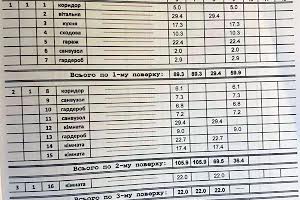 1 1 1 коридор 5.0 5.0
2 вітальня 29.4 29.4
3 кухня 17.3 17.3
4 сходова 10.3 10.3
5 гараж 22.4 22.4
6 санвузол 2.0 2.0
7 гардероб 2.9 2.9
Всього по 1-му поверху: 89.3 89.3 29.4 59.9
2 1 8 коридор 6.1 6.1
9 санвузол 7.3 7.3
10 гардероб 6.8 6.8
11 санвузол 7.2 7.2
12 кімната 29.4 29.4
13 гардероб 9.0 9.0
14 кімната 22.7 22.7
15 кімната 17.4 17.4
Всього по 2-му поверху: 105.9 105.9 69.5 36.4
3 1 16 кімната 22.0 22.0
Всього по 3-му поверху: 22.0 22.0 22.0